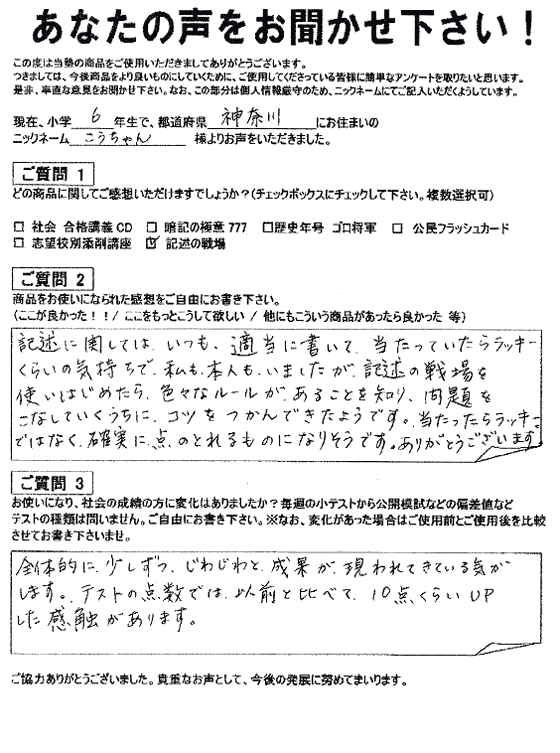 あなたの声をお聞かせ下さい！
この度は当塾の商品をご使用いただきましてありがとうございます。
つきましては、今後商品をより良いものにしていくために、ご使用してくださっている皆様に簡単なアンケートを取りたいと思います。
是非、率直な意見をお聞かせ下さい。なお、この部分は個人情報厳守のため、ニックネームにてご記入いただくようしています。
現在、小学 6 年生で、都道府県 神奈川 にお住まいの
ニックネーム こうちゃん 様よりお声をいただきました。
ご質問 1
どの商品に関してご感想いただけますでしょうか？（チェックボックスにチェックして下さい。複数選択可）
□ 社会 合格講義CD □ 暗記の極意777 □歴史年号 ゴロ将軍 □ 公民フラッシュカード
□ 志望校別添削講座 ☑ 記述の戦場
ご質問 2
商品をお使いになられた感想をご自由にお書き下さい。
（ここが良かった！！/ ここをもっとこうして欲しい / 他にもこういう商品があったら良かった 等）
記述に関しては、いつも、適当に書いて、当たっていたらラッキー
くらいの気持ちで、私も、本人も、いましたが、記述の戦場を
使いはじめたら、色々なルールが、あることを知り、問題を
こなしていくうちに、コツをつかんできたようです。当たったらラッキー
ではなく、確実に、点のとれるものになりそうです。ありがとうございます。
ご質問 3
お使いになり、社会の成績の方に変化はありましたか？毎週の小テストから公開模試などの偏差値など
テストの種類は問いません。ご自由にお書き下さい。※なお、変化があった場合はご使用前とご使用後を比較
させてお書き下さいませ。
全体的に、少しずつ、じわじわと、成果が、現われてきている気が
します。テストの点数では、以前と比べて、10点くらいUP
した感触があります。
ご協力ありがとうございました。貴重なお声として、今後の発展に努めてまいります。